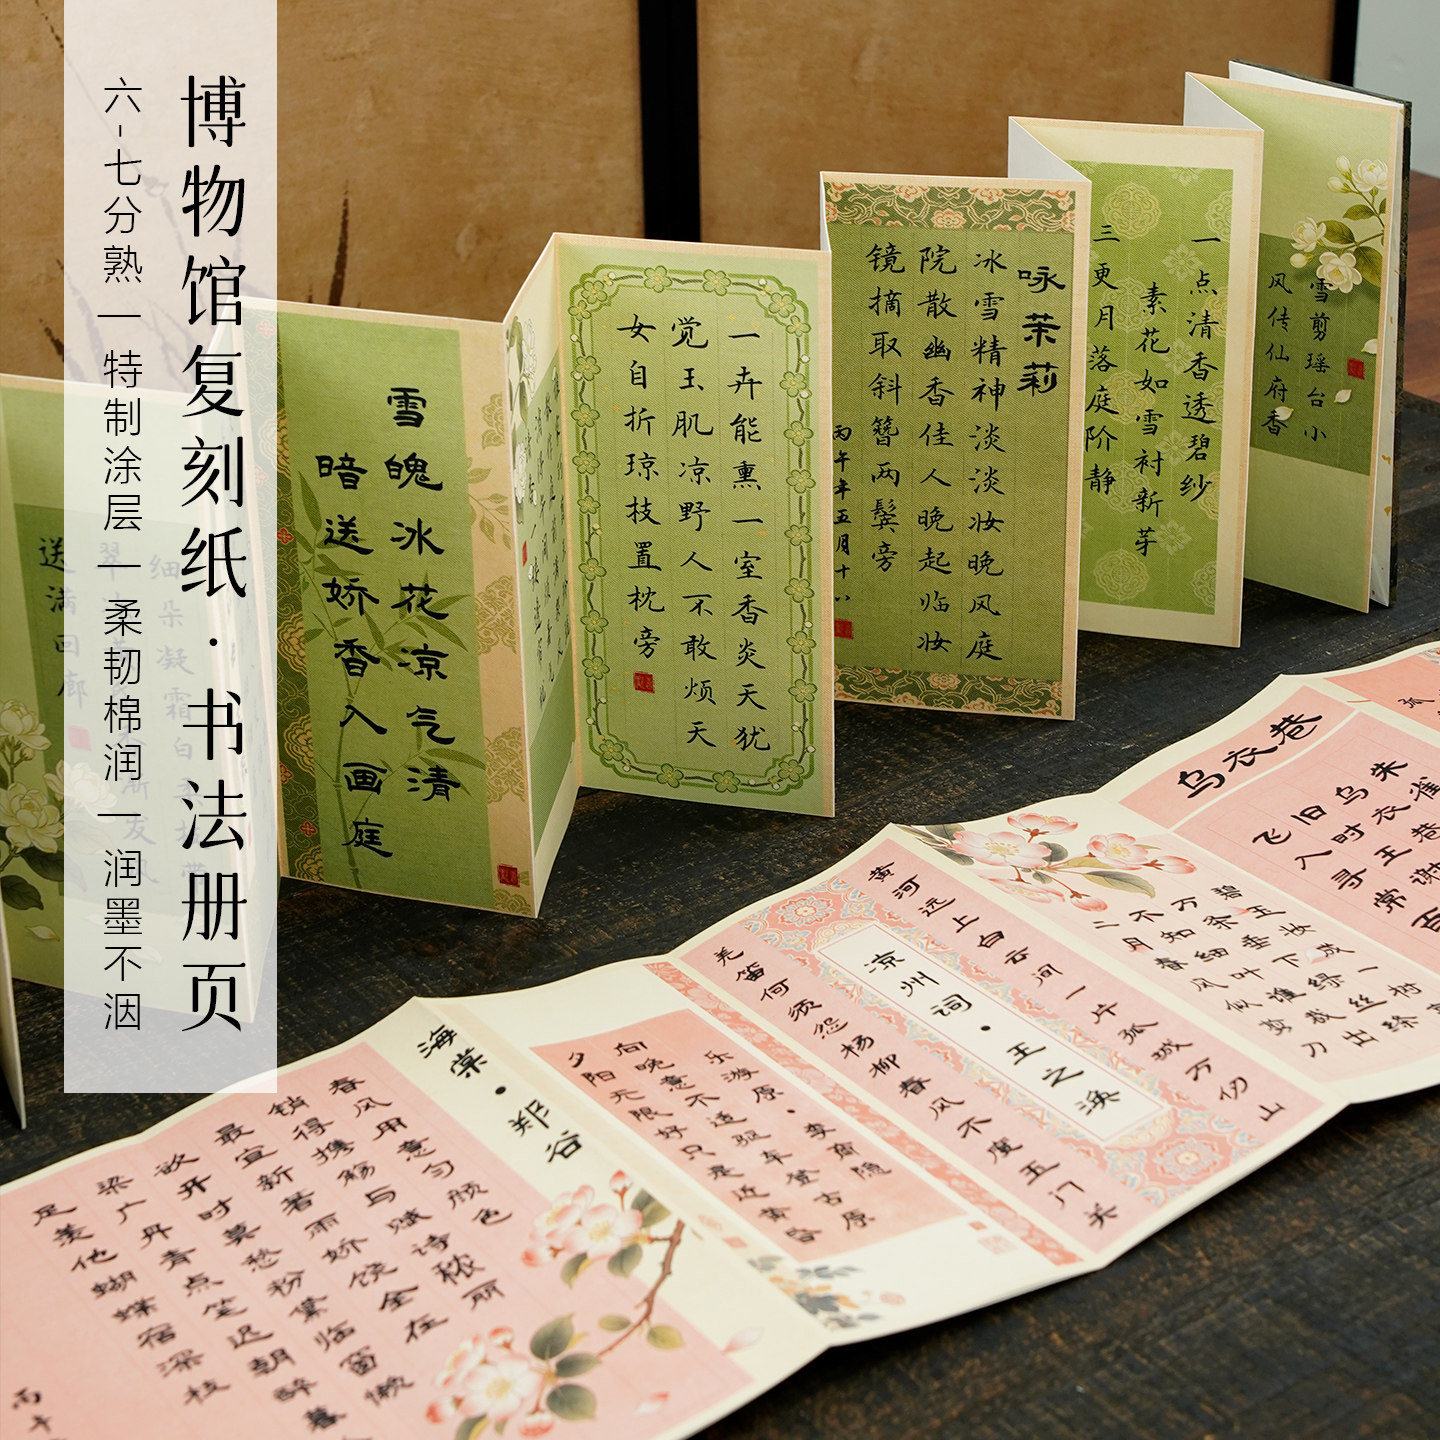 博物馆复刻纸·书法册页
六-七分熟｜特制涂层｜柔韧棉润｜润墨不洇
雪剪瑶台小
风传仙府香
一点清香透碧纱
素花如雪衬新芽
三更月落庭阶静
咏茉莉
冰雪精神淡淡妆晚风庭
院散幽香佳人晚起临妆
镜摘取斜簪两鬓旁
丙午年五月十八
一卉能熏一室香炎天犹
觉玉肌凉野人不敢烦天
女自折琼枝置枕旁
雪魄冰花凉气清
暗送娇香入画庭
细朵凝霜白
送满回廊
乌衣巷
朱雀
乌衣巷
旧时王谢
飞入寻常百
碧玉妆成一树
万条垂下绿丝绦
不知细叶谁裁出
二月春风似剪刀
黄河远上白云间一片孤城万仞山
凉州词·王之涣
羌笛何须怨杨柳春风不度玉门关
乐游原·李商隐
向晚意不适驱车登古原
夕阳无限好只是近黄昏
海棠·郑谷
春风用意匀颜色
销得携觞与赋诗秾丽
最宜新著雨娇饶全在
欲开时莫愁粉黛临窗懒
梁广丹青点笔迟朝醉暮
足羡他蝴蝶宿深枝
丙午